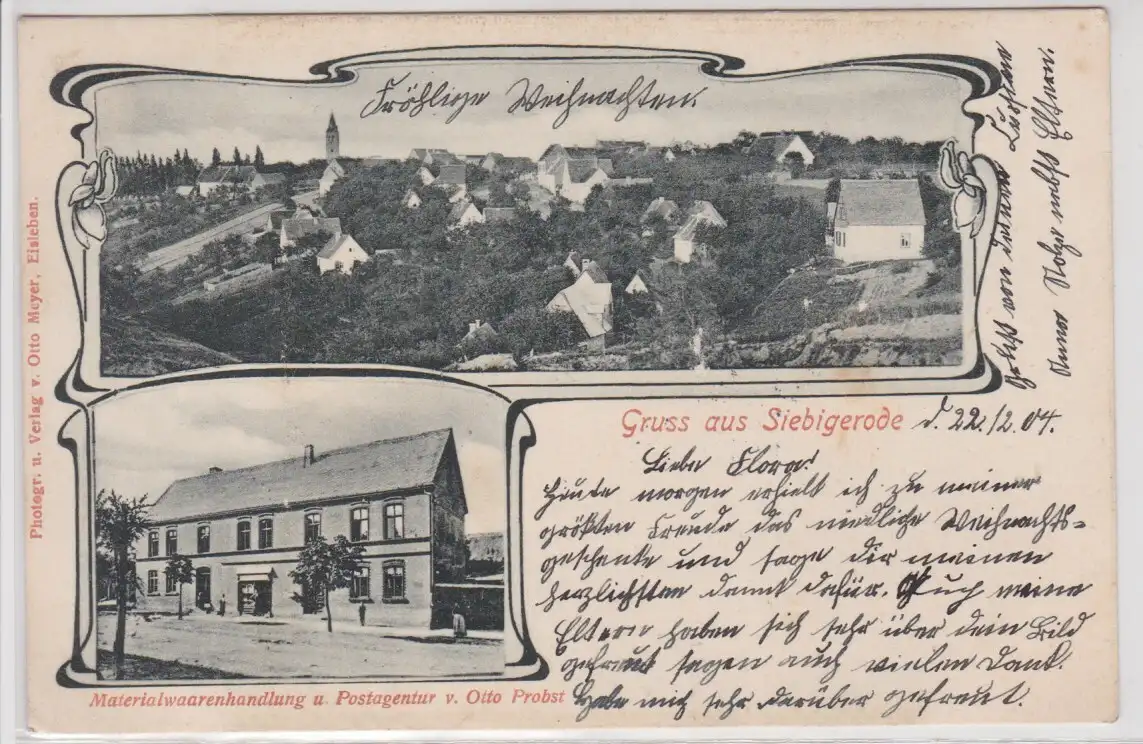 Fröhlige Weihnachten.
Photogr. u. Verlag v. Otto Meyer, Eisleben.
Gruss aus Siebigerode d. 22.12.04.
Liebe Flora!
Heute morgen erhielt ich zu meiner
größten Freude das niedliche Weihnachts-
geschenke und sage dir meinen
herzlichsten Dank dafür. Auch meine
Eltern haben sich sehr über dein Bild
gefreut sagen auch vielen Dank.
Habe mich sehr darüber gefreut.
Materialwaarenhandlung u. Postagentur v. Otto Probst
von deiner
nebst Eltern.